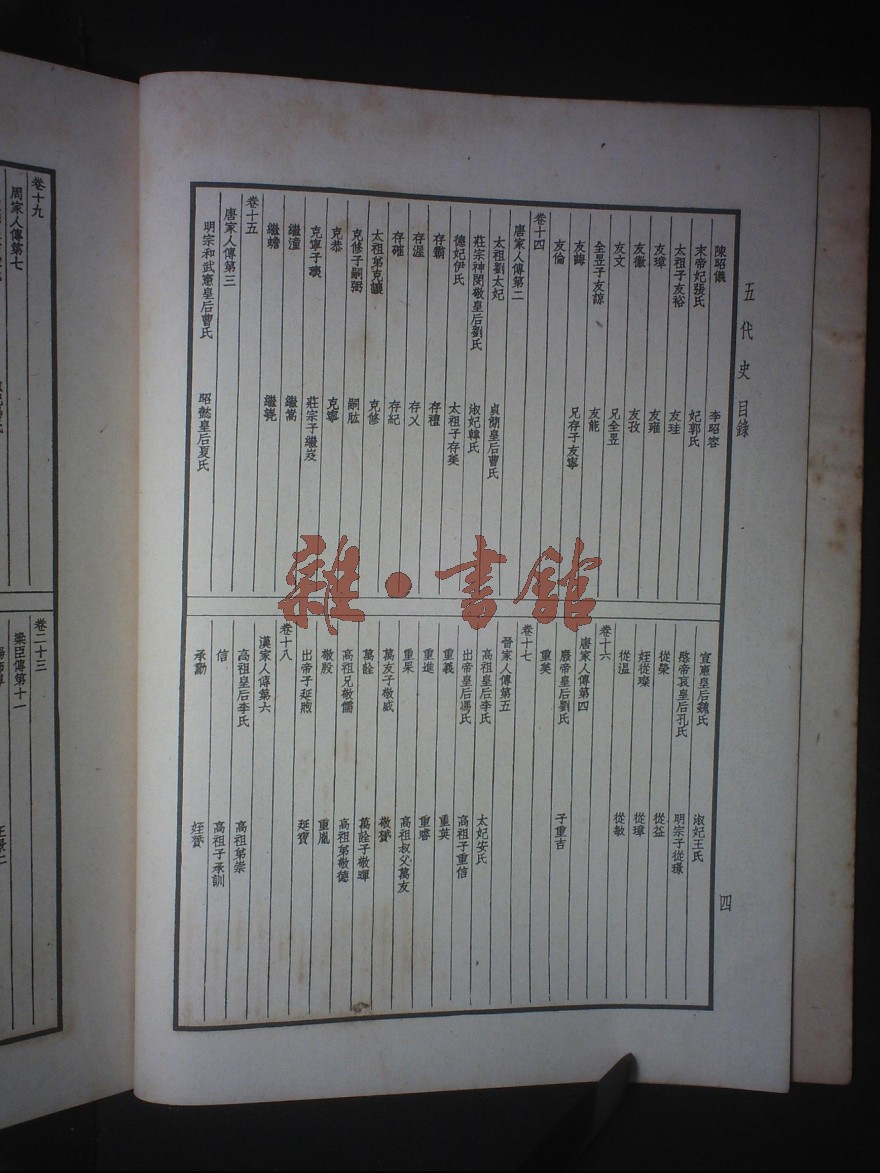 五代史 目錄
陳昭儀 李昭容
末帝妃張氏 妃郭氏
太祖子友裕 友珪
友璋 友雍
友徽 友孜
友文 兄全昱
全昱子友諒 友能
友誨 兄存子友寧
友倫
卷十四
唐家人傳第二
太祖劉太妃 貞簡皇后曹氏
莊宗神閔敬皇后劉氏 淑妃韓氏
德妃伊氏 太祖子存美
存霸 存禮
存渥 存乂
存確 存紀
太祖弟克讓 克修
克修子嗣弼 嗣肱
克恭 克寧
克寧子瓌 莊宗子繼岌
繼潼 繼嵩
繼蟾 繼嶢
卷十五
唐家人傳第三
明宗和武憲皇后曹氏 昭懿皇后夏氏
宣憲皇后魏氏 淑妃王氏
愍帝哀皇后孔氏 明宗子從璟
從榮 從益
姪從璨 從璋
從溫 從敏
卷十六
唐家人傳第四
廢帝皇后劉氏 子重吉
重美
卷十七
晉家人傳第五
高祖皇后李氏 太妃安氏
出帝皇后馮氏 高祖子重信
重義 重英
重進 重睿
重杲 高祖叔父萬友
萬友子敬威 敬贇
萬詮 萬詮子敬暉
高祖兄敬儒 高祖弟敬德
敬殷 重胤
出帝子延煦 延寶
卷十八
漢家人傳第六
高祖皇后李氏 高祖弟崇
信 高祖子承訓
承勳 姪贇
四
卷十九
周家人傳第七
卷二十三
梁臣傳第十一
雜·書館